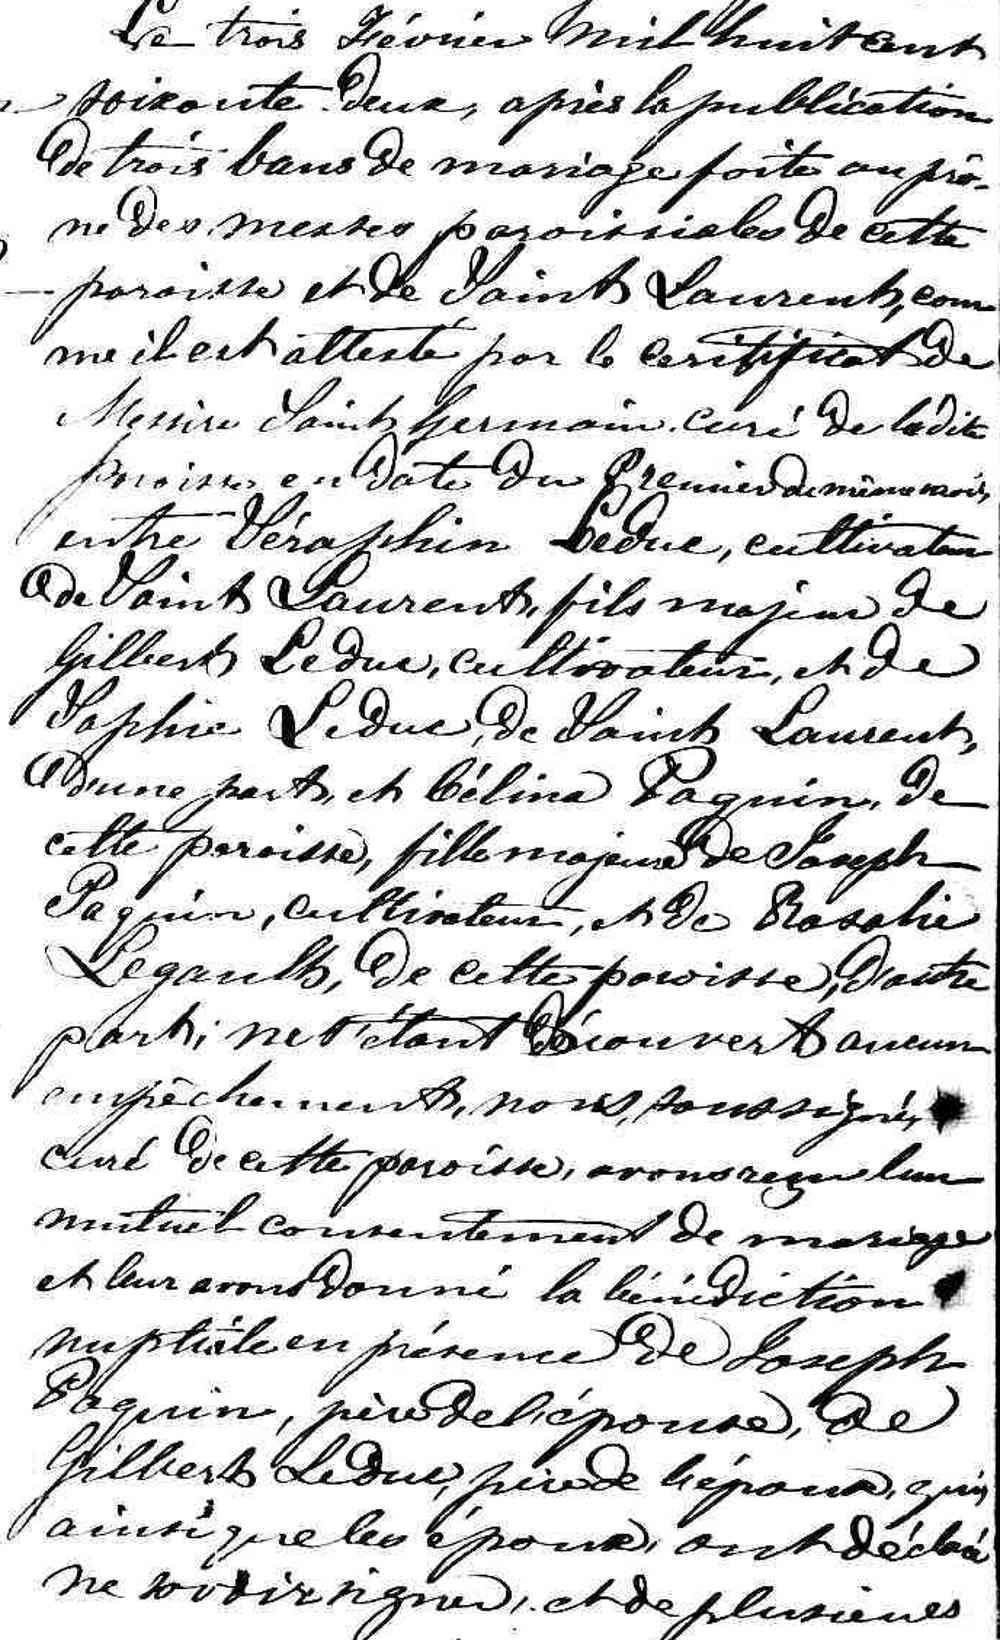 Le trois Février mil huit cent
soixante deux, après la publication
de trois bans de mariage faite au prô-
ne des messes paroissiales de cette
paroisse et de Saint Laurent, com
me il est attesté par le certificat de
Messire Saint Germain curé de ladite
paroisse en date du Premier du même mois,
entre Séraphin Leduc, cultivateur
de Saint Laurent, fils majeur de
Gilbert Leduc, cultivateur, et de
Sophie Leduc, de Saint Laurent,
d'une part, et Célina Paquin, de
cette paroisse, fille majeure de Joseph
Paquin, cultivateur, et de Rosalie
Legault, de cette paroisse, d'autre
part; ne s'étant découvert aucun
empêchement, nous, soussigné,
curé de cette paroisse, avons reçu leur
mutuel consentement de mariage
et leur avons donné la bénédiction
nuptiale en présence de Joseph
Paquin, père de l'épouse, de
Gilbert Leduc, père de l'époux, qui,
ainsi que les époux, ont déclaré
ne savoir signer, et de plusieurs